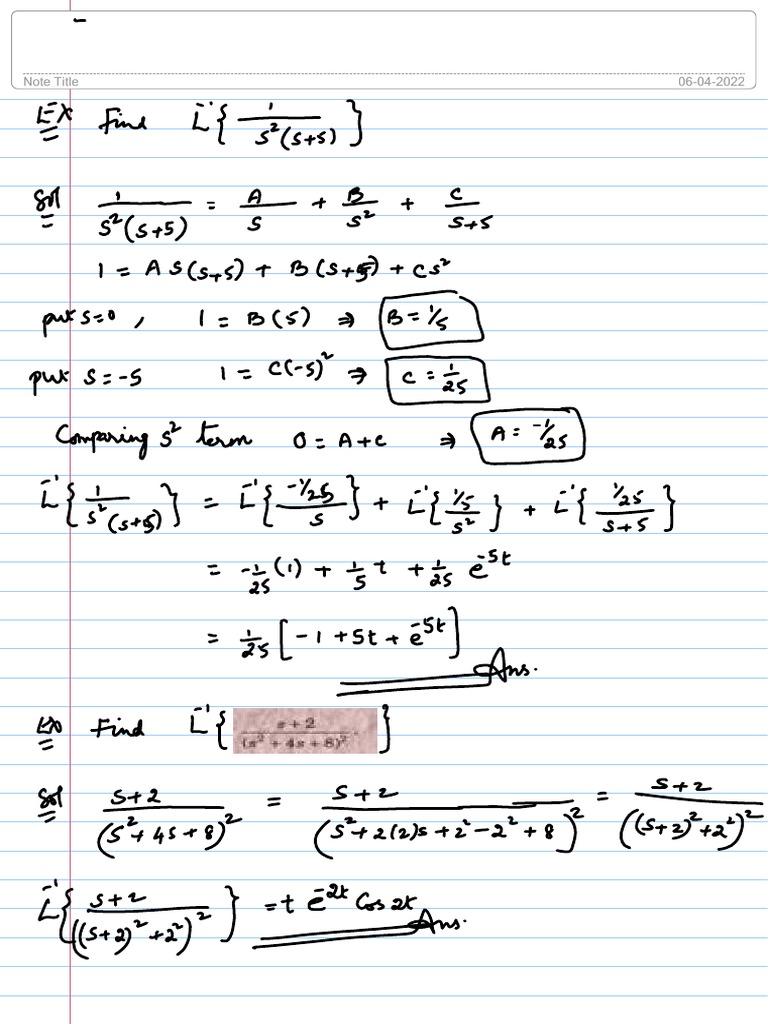 Note Title
06-04-2022
Ex Find L⁻¹{ 1 / s²(s+5) }
Sol 1 / s²(s+5) = A/s + B/s² + C/(s+5)
1 = A s(s+5) + B(s+5) + Cs²
put s=0, 1 = B(5) ⇒ B = 1/5
put s=-5 1 = C(-5)² ⇒ C = 1/25
Comparing s² term 0 = A+C ⇒ A = -1/25
L⁻¹{ 1 / s²(s+5) } = L⁻¹{ (-1/25) / s } + L⁻¹{ (1/5) / s² } + L⁻¹{ (1/25) / (s+5) }
= -1/25 (1) + 1/5 t + 1/25 e^(-5t)
= 1/25 [ -1 + 5t + e^(-5t) ]
Ans.
Ex Find L⁻¹{ (s+2) / (s² + 4s + 8)² . }
Sol (s+2) / (s²+4s+8)² = (s+2) / (s²+2(2)s+2²-2²+8)² = (s+2) / ((s+2)²+2²)²
L⁻¹{ (s+2) / ((s+2)²+2²)² } = t e^(-2t) Cos 2t
Ans.